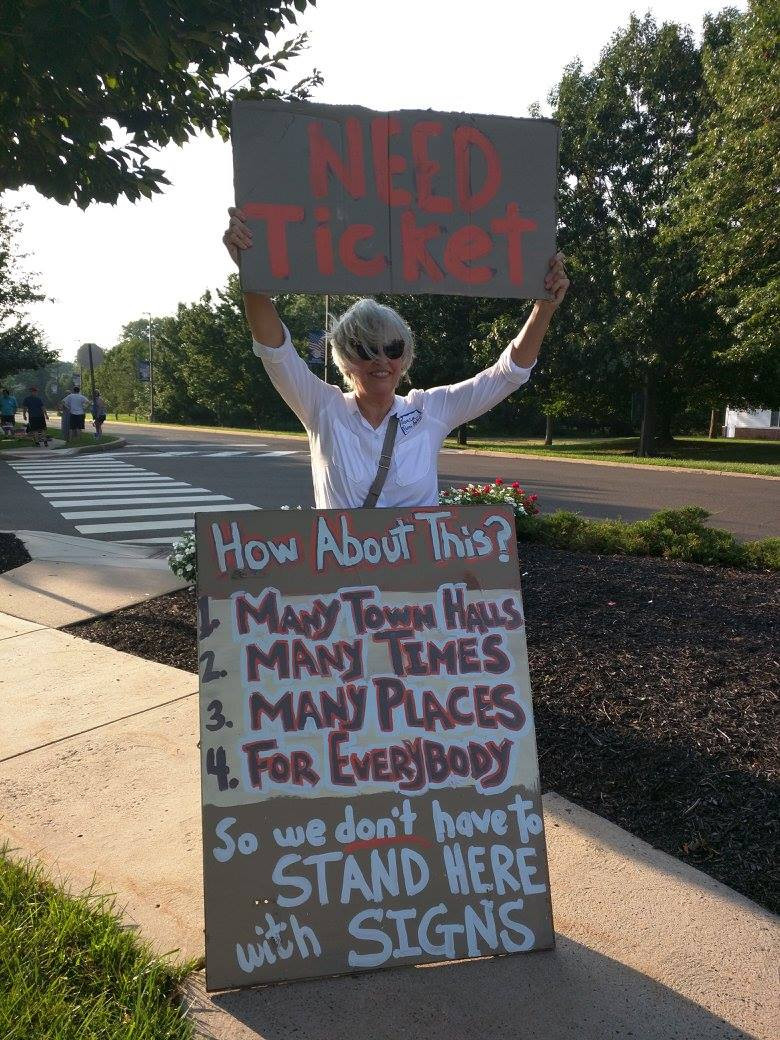 NEED
Ticket
How About This?
1. MANY TOWN HALLS
2. MANY TIMES
3. MANY PLACES
4. FOR EVERYBODY
So we don't have to
STAND HERE
with SIGNS